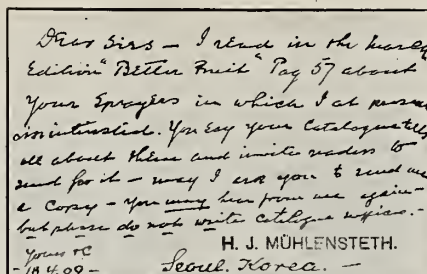 Dear Sirs — I read in the March
Edition "Better Fruit" Pag 57 about
Your Sprayers in which I at present
am interested. You say your Catalogue tells
all about them and invite readers to
send for it — may I ask you to send me
a copy — you may hear from me again —
but please do not write catalogue suffices. —
Yours &C
H. J. MÜHLENSTETH.
- 18.4.09 -
Seoul. Korea. —